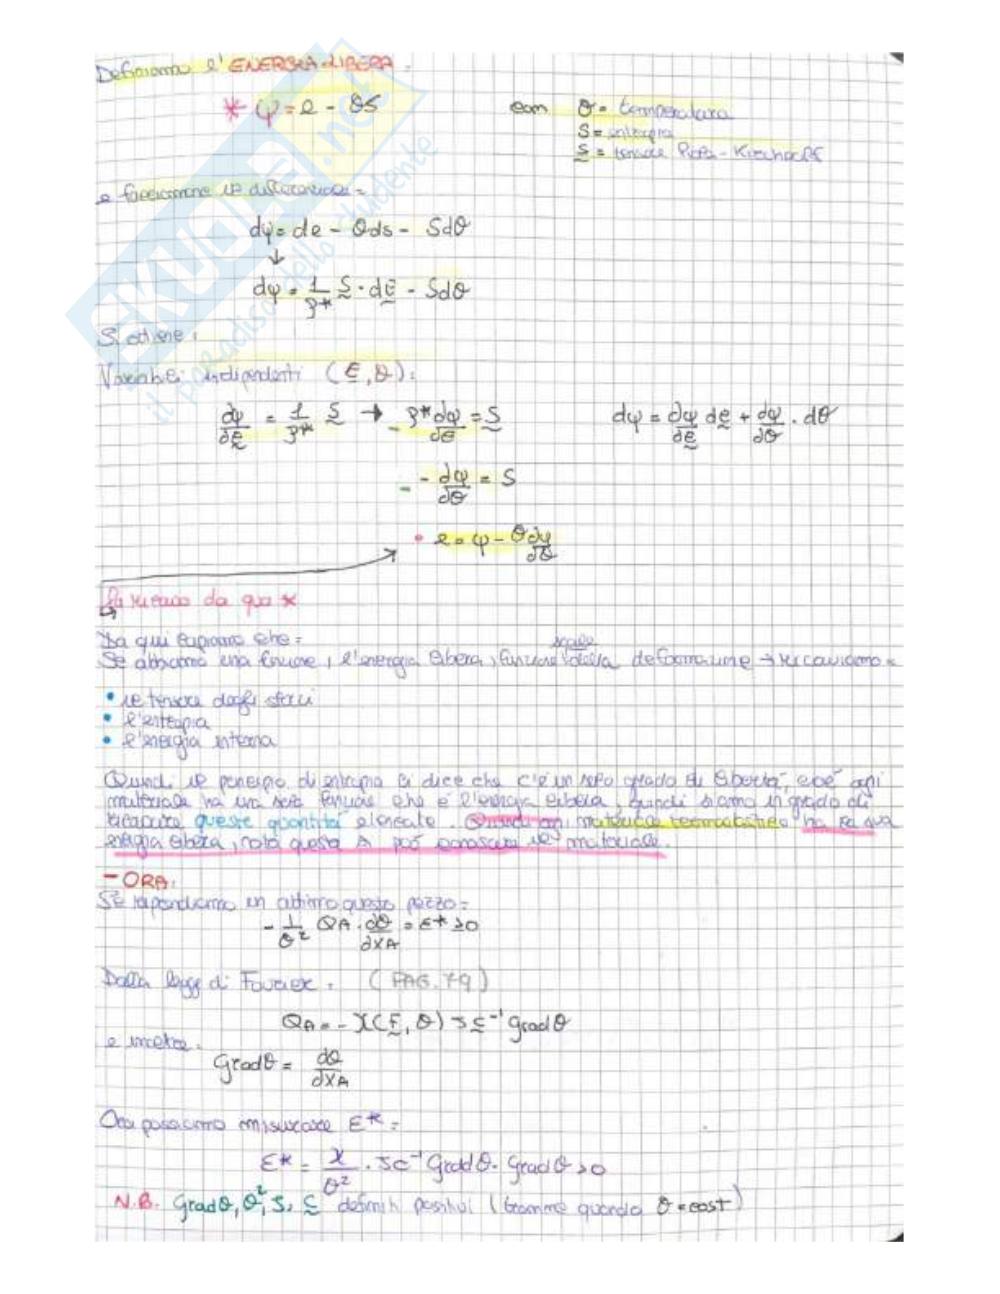 Definiamo l'ENERGIA LIBERA:
* ψ = e - θS con θ = temperatura
S = entropia
S = tensore Piola-Kirchhoff
e facciamone il differenziale =
dψ = de - θds - Sdθ
↓
dψ = 1/ρ* S · dE - Sdθ
Si ottiene:
Variabili indipendenti (E, θ):
dψ/dE = 1/ρ* S → ρ* dψ/dE = S dψ = dψ/dE dE + dψ/dθ · dθ
- dψ/dθ = S
• e = ψ - θ dψ/dθ
da qua *
Da qui capiamo che =
scalare
Se abbiamo una funzione, l'energia libera, funzione della deformazione → ricaviamo =
• il tensore degli sforzi
• l'entropia
• l'energia interna
Quindi il principio di entropia ci dice che c'è un solo grado di libertà, cioè ogni
materiale ha una sola funzione che è l'energia libera, quindi siamo in grado di
ricavare queste quantità elencate. Quindi ogni materiale termoelastico ha la sua
energia libera, nota questa si può conoscere il materiale.
- ORA:
Se riprendiamo un attimo questo pezzo =
- 1/θ² QA · dθ/dXA = E* ≥ 0
Dalla legge di Fourier: (PAG. 79)
QA = - χ(E, θ) J C⁻¹ Grad θ
e inoltre:
Gradθ = dθ/dXA
Ora possiamo misurare E* =
E* = χ/θ² · J C⁻¹ Gradθ · Gradθ > 0
N.B. Gradθ, θ², J, C definiti positivi (tranne quando θ = cost)
SKUOLA.net
il paradiso dello studente